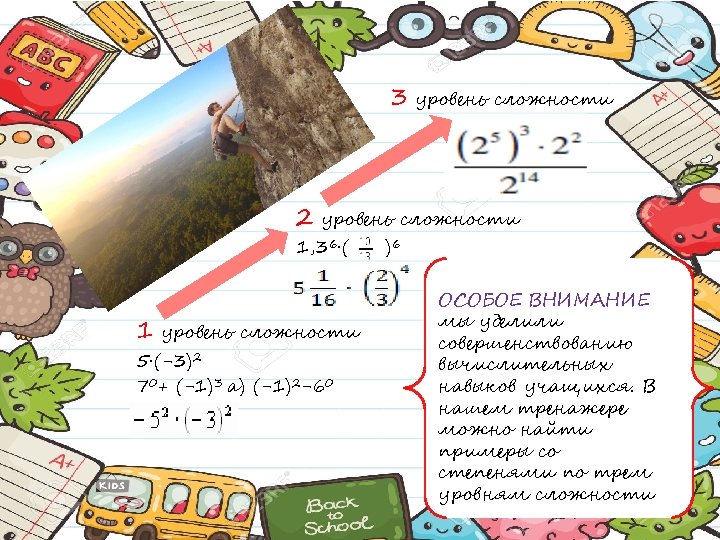 3 уровень сложности
(2⁵)³ · 2²
2¹⁴
2 уровень сложности
1,3⁶·( 10/13 )⁶
5 1/16 · (2/3)⁴
1 уровень сложности
5·(-3)²
7⁰+ (-1)³ а) (-1)²-6⁰
-5² · (-3)²
ОСОБОЕ ВНИМАНИЕ
мы уделили
совершенствованию
вычислительных
навыков учащихся. В
нашем тренажере
можно найти
примеры со
степенями по трем
уровням сложности
ABC
A+
A+
A+
KIDS
Back
to
School